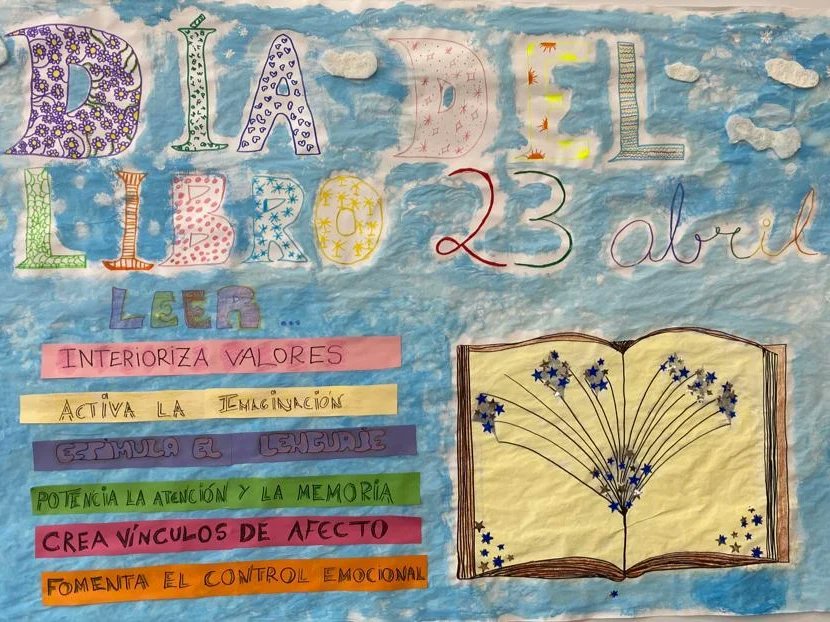 DÍA DEL
LIBRO 23 abril
LEER...
INTERIORIZA VALORES
ACTIVA LA IMAGINACIÓN
ESTIMULA EL LENGUAJE
POTENCIA LA ATENCIÓN Y LA MEMORIA
CREA VÍNCULOS DE AFECTO
FOMENTA EL CONTROL EMOCIONAL